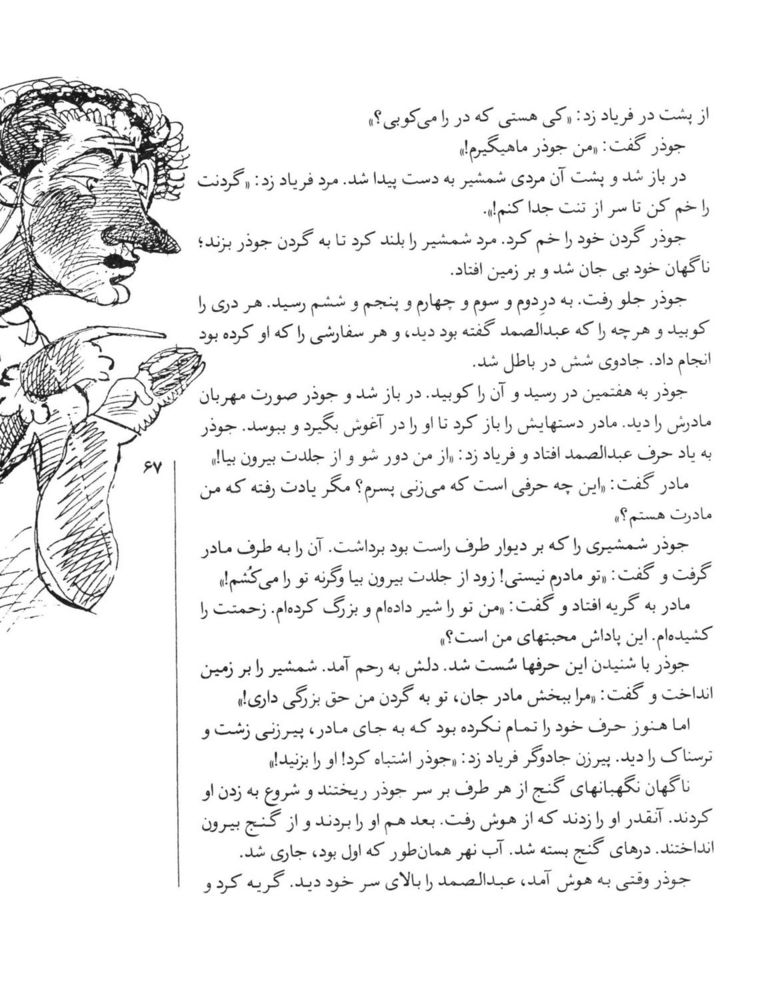 از پشت در فریاد زد: «کی هستی که در را می‌کوبی؟»
جوذر گفت: «من جوذر ماهیگیرم!»
در باز شد و پشت آن مردی شمشیر به دست پیدا شد. مرد فریاد زد: «گردنت
را خم کن تا سر از تنت جدا کنم!».
جوذر گردن خود را خم کرد. مرد شمشیر را بلند کرد تا به گردن جوذر بزند؛
ناگهان خود بی جان شد و بر زمین افتاد.
جوذر جلو رفت. به درِدوم و سوم و چهارم و پنجم و ششم رسید. هر دری را
کوبید و هرچه را که عبدالصمد گفته بود دید، و هر سفارشی را که او کرده بود
انجام داد. جادوی شش در باطل شد.
جوذر به هفتمین در رسید و آن را کوبید. در باز شد و جوذر صورت مهربان
مادرش را دید. مادر دستهایش را باز کرد تا او را در آغوش بگیرد و ببوسد. جوذر
به یاد حرف عبدالصمد افتاد و فریاد زد: «از من دور شو و از جلدت بیرون بیا!»
مادر گفت: «این چه حرفی است که می‌زنی پسرم؟ مگر یادت رفته که من
مادرت هستم؟»
جوذر شمشیری را که بر دیوار طرف راست بود برداشت. آن را به طرف مادر
گرفت و گفت: «تو مادرم نیستی! زود از جلدت بیرون بیا وگرنه تو را می‌کُشم!»
مادر به گریه افتاد و گفت: «من تو را شیر داده‌ام و بزرگ کرده‌ام. زحمتت را
کشیده‌ام. این پاداش محبتهای من است؟»
جوذر با شنیدن این حرفها سُست شد. دلش به رحم آمد. شمشیر را بر زمین
انداخت و گفت: «مرا ببخش مادر جان، تو به گردن من حق بزرگی داری!»
اما هنوز حرف خود را تمام نکرده بود که به جای مادر، پیرزنی زشت و
ترسناک را دید. پیرزن جادوگر فریاد زد: «جوذر اشتباه کرد! او را بزنید!»
ناگهان نگهبانهای گنج از هر طرف بر سر جوذر ریختند و شروع به زدن او
کردند. آنقدر او را زدند که از هوش رفت. بعد هم او را بردند و از گنج بیرون
انداختند. درهای گنج بسته شد. آب نهر همان‌طور که اول بود، جاری شد.
جوذر وقتی به هوش آمد، عبدالصمد را بالای سر خود دید. گریه کرد و
۶۷